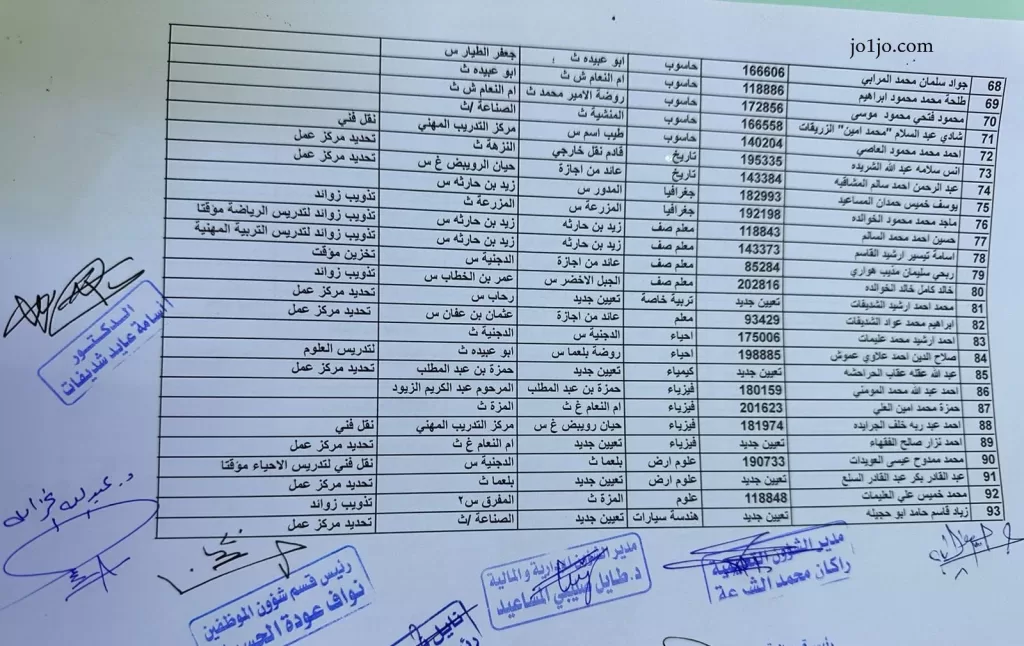 jo1jo.com
68 جواد سلمان محمد المرابي 166606 حاسوب ابو عبيده ث جعفر الطيار س
69 طلحة محمد محمود ابراهيم 118886 حاسوب ام النعام ش ث ابو عبيده ث
70 محمود فتحي محمود موسى 172856 حاسوب روضة الامير محمد ث ام النعام ش ث
71 شادي عبد السلام "محمد امين" الزريقات 166558 حاسوب المنشية ث الصناعة /ث
72 احمد محمد محمود العاصي 140204 حاسوب طيب اسم س مركز التدريب المهني نقل فني
73 انس سلامه عبد الله الشريده 195335 تاريخ قادم نقل خارجي النزهة ث تحديد مركز عمل
74 عبد الرحمن احمد سالم المشاقبه 143384 تاريخ عائد من اجازة حيان الرويبض غ س تحديد مركز عمل
75 يوسف خميس حمدان المساعيد 182993 جغرافيا المدور س زيد بن حارثه س
76 ماجد محمد محمود الخوالده 192198 جغرافيا المزرعة س المزرعة ث تذويب زوائد
77 حسين احمد محمد السالم 118843 معلم صف زيد بن حارثه زيد بن حارثه س تذويب زوائد لتدريس الرياضة مؤقتا
78 اسامة تيسير ارشيد القاسم 143373 معلم صف زيد بن حارثه زيد بن حارثه س تذويب زوائد لتدريس التربية المهنية
79 ربحي سليمان مذيب هواري 85284 معلم صف عائد من اجازة الدجنية س تخزين مؤقت
80 خالد كامل خالد الخوالده 202816 معلم صف الجبل الاخضر س عمر بن الخطاب س تذويب زوائد
81 محمد احمد ارشيد الشديفات تعيين جديد تربية خاصة تعيين جديد رحاب س تحديد مركز عمل
82 ابراهيم محمد عواد الشديفات 93429 معلم عائد من اجازة عثمان بن عفان س تحديد مركز عمل
83 احمد ارشيد محمد عليمات 175006 احياء الدجنية س الدجنية ث
84 صلاح الدين احمد علاوي عموش 198885 احياء روضة بلعما س ابو عبيده ث لتدريس العلوم
85 عبد الله عقله عقاب الحراحشه تعيين جديد كيمياء تعيين جديد حمزة بن عبد المطلب تحديد مركز عمل
86 احمد عبد الله محمد المومني 180159 فيزياء حمزة بن عبد المطلب المرحوم عبد الكريم الزيود
87 حمزة محمد امين العلي 201623 فيزياء ام النعام غ ث المزة ث
88 احمد عبد ربه خلف الجرايده 181974 فيزياء حيان رويبض غ س مركز التدريب المهني نقل فني
89 احمد نزار صالح الفقهاء تعيين جديد فيزياء تعيين جديد ام النعام غ ث تحديد مركز عمل
90 محمد ممدوح عيسى العويدات 190733 علوم ارض بلعما ث الدجنية س نقل فني لتدريس الاحياء مؤقتا
91 عبد القادر بكر عبد القادر السلع تعيين جديد علوم ارض تعيين جديد بلعما ث تحديد مركز عمل
92 محمد خميس علي العليمات 118848 علوم المزة ث المفرق س٢ تذويب زوائد
93 زياد قاسم حامد ابو حجيله تعيين جديد هندسة سيارات تعيين جديد الصناعة /ث تحديد مركز عمل
الدكتور
أسامة عايد شديفات
مدير الشؤون
راكان محمد الشرعة
مدير الشؤون الإدارية والمالية
د.طايل المساعيد
رئيس قسم شؤون الموظفين
نواف عودة
نايل